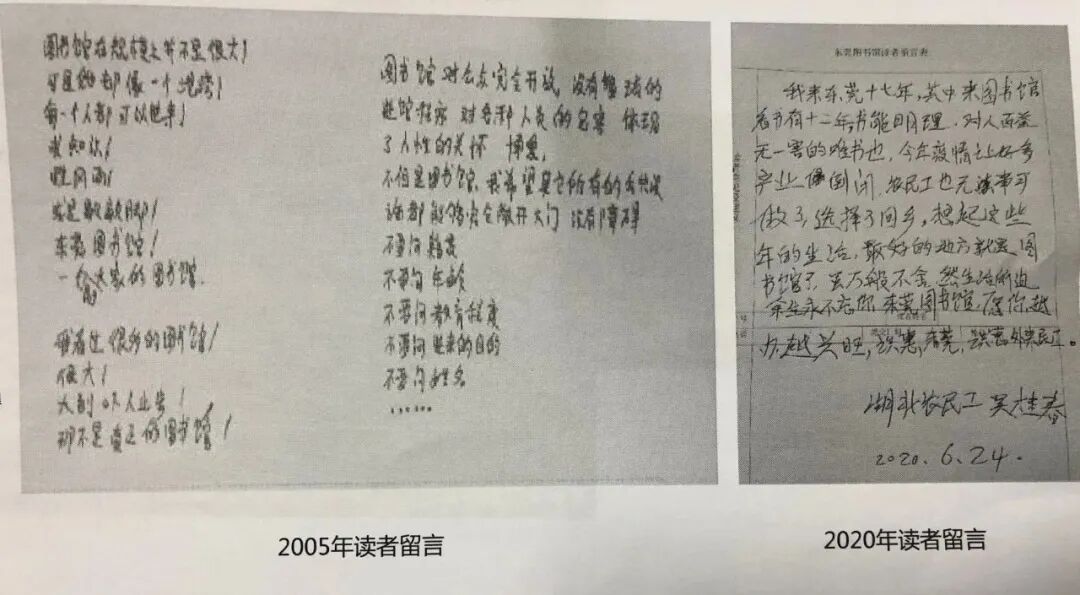 图书馆在规模上并不是很大！
可是她却像一个
每一个人都可以进来！
求知欲！
东莞图书馆！
一个大家的图书馆.
我看过很多的图书馆！
很大！
大到吓人止步！
那不是真正的图书馆！
图书馆对公众完全开放，没有繁琐的
进馆程序 对各种人员的包容 体现
了人性的关怀 博爱，
不但是图书馆，我希望其它所有的公共设
施都能够完全敞开大门 没有障碍
不要问籍贯
不要问年龄
不要问教育程度
不要问进来的目的
不要问姓名
……
东莞图书馆读者留言表
我来东莞十七年，其中来图书馆
看书有十二年，书能明理，对人百益
无一害的唯书也，今年疫情让好多
产业倒闭，农民工也无事可
做了，选择了回乡，想起这些
年的生活，最好的地方就是图
书馆了，万般不舍，然生活所迫
余生永不忘你，东莞图书馆，愿你越
办越兴旺，识惠东莞，识惠外来民工。
湖北农民工 吴桂春
2020.6.24.
2005年读者留言
2020年读者留言